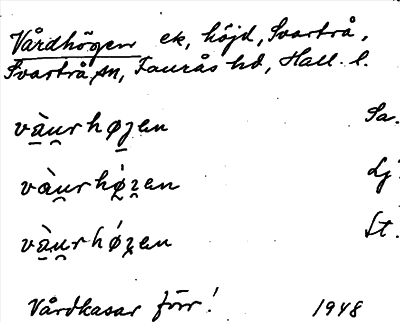 Vårdhögen ek, höjd, Svartrå,
Svartrå sn, Faurås hd, Hall. l.
và̱u̯rhøȷ̱en Sa.
vàu̯rhǿ̱ʒen Lj.
và̱u̯rhǿʒen St.
Vårdkasar förr! 1948